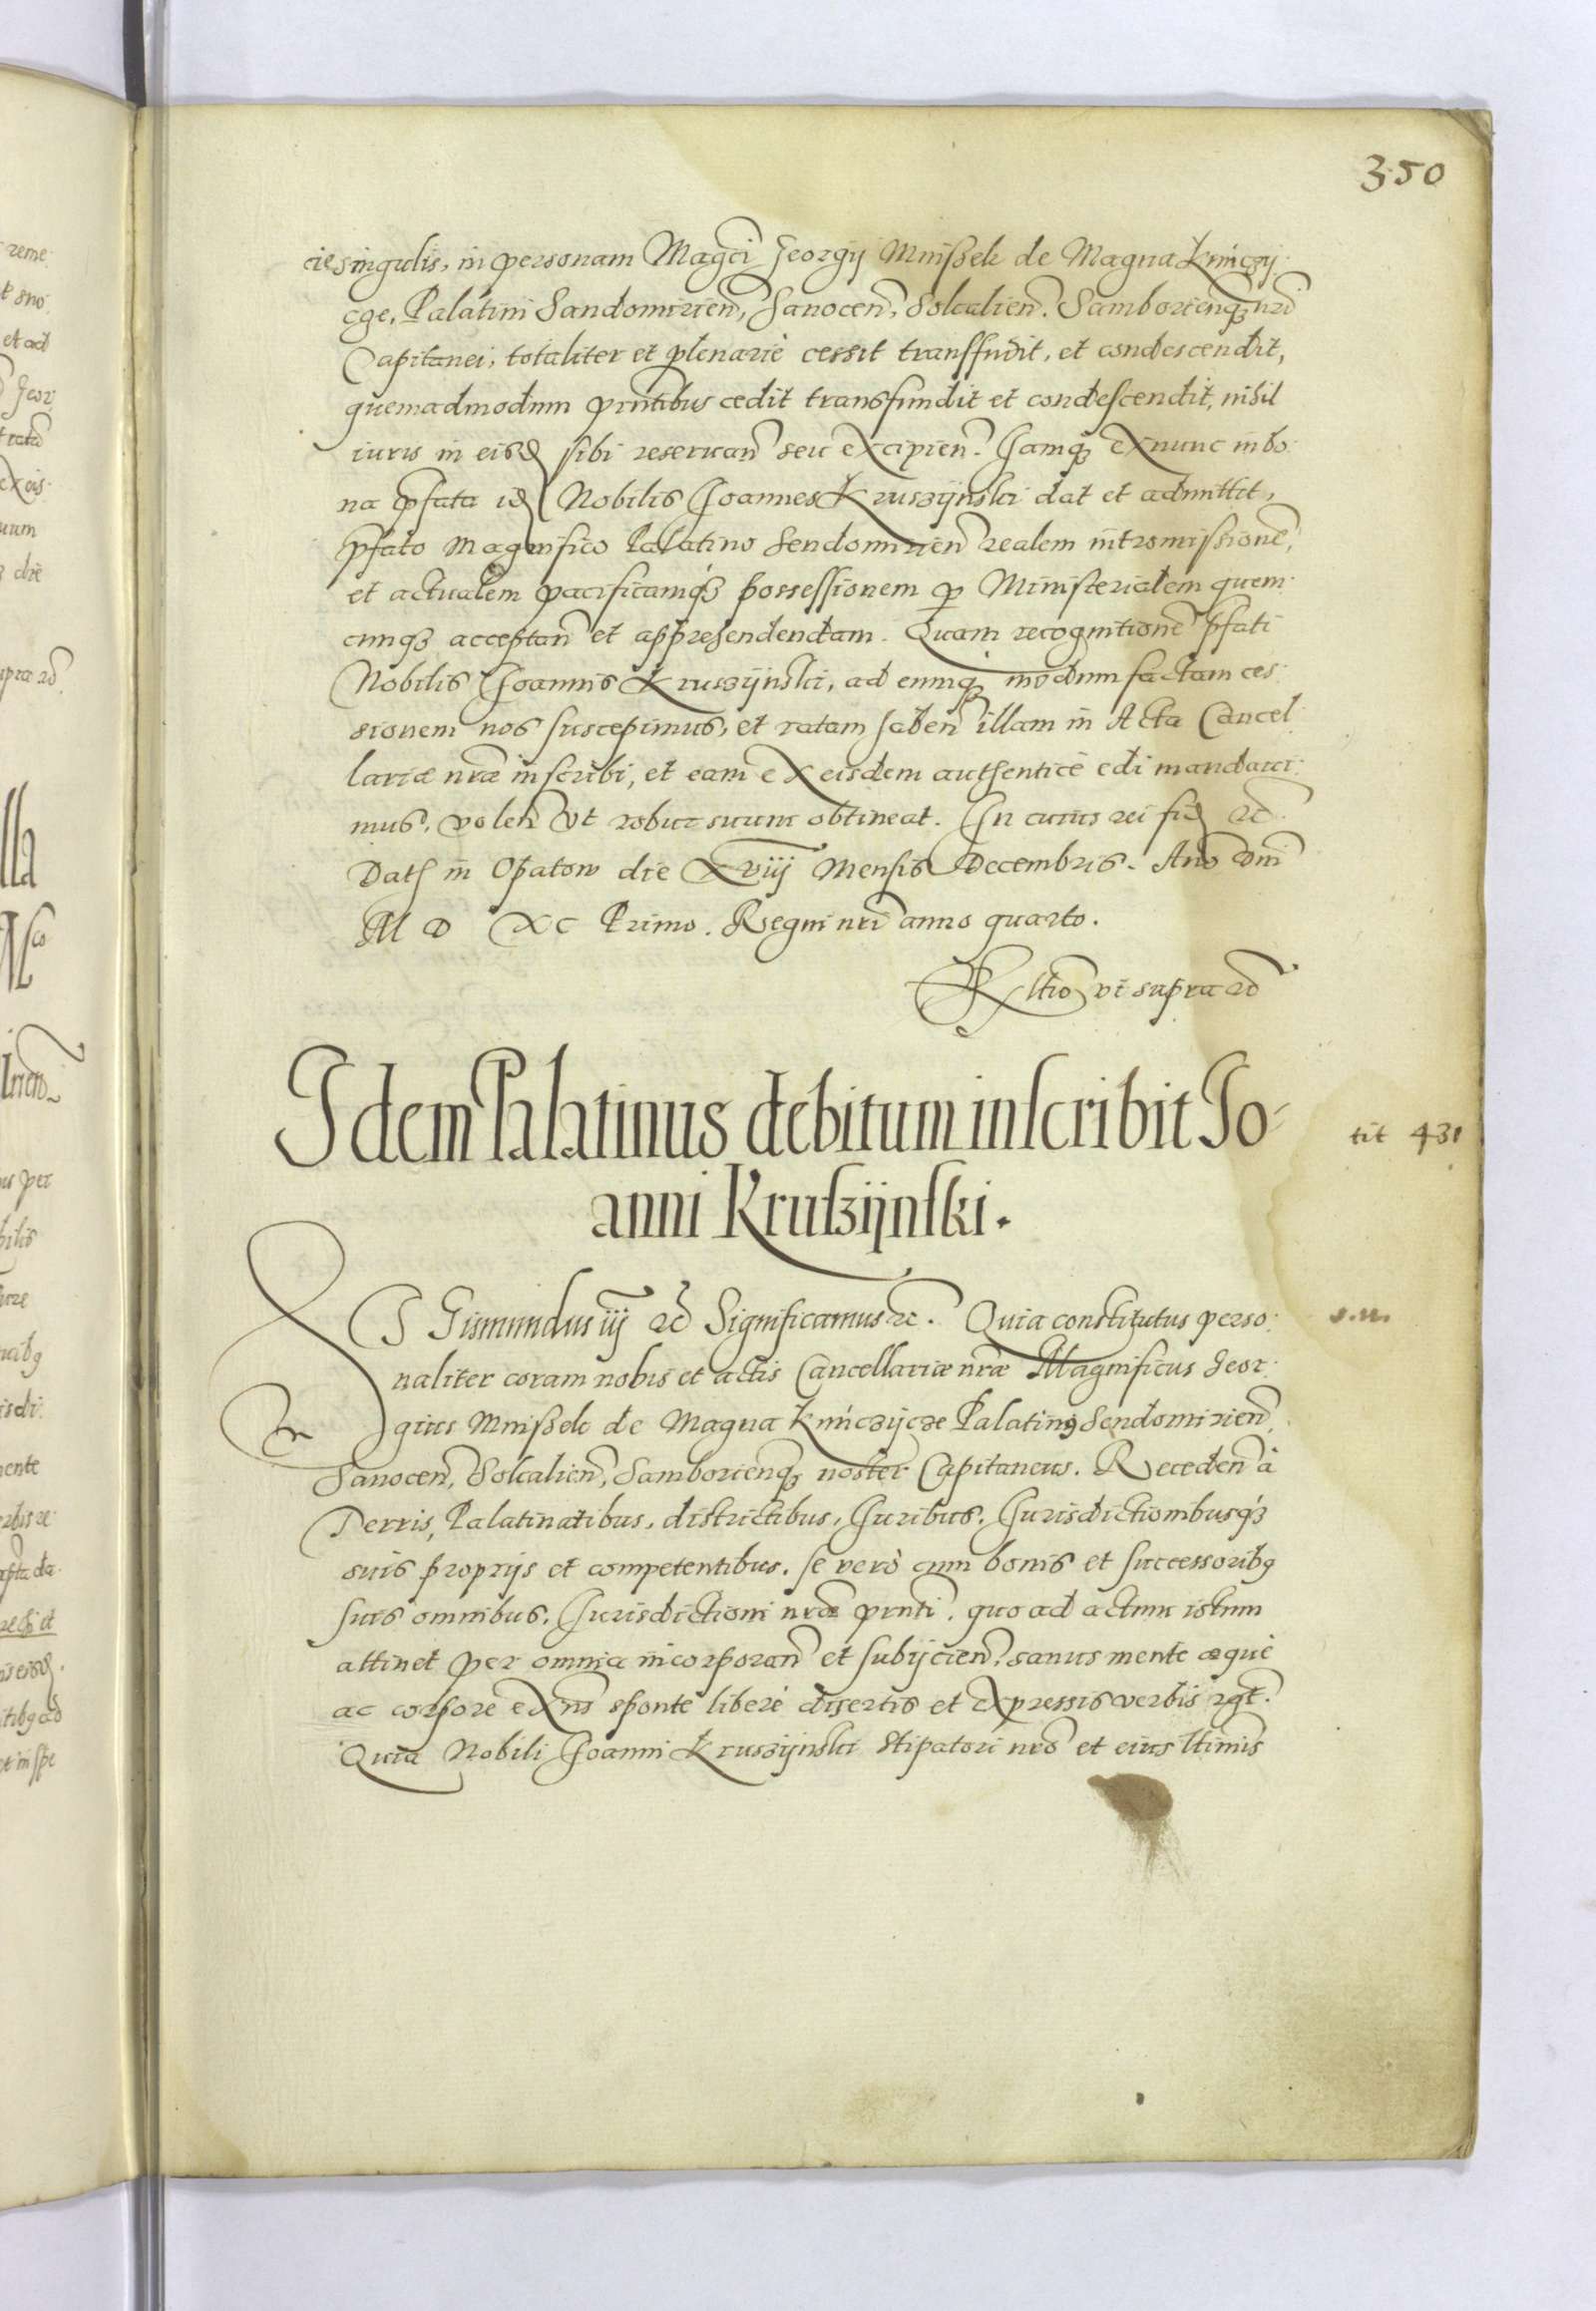 350
cie singulis, in personam Magci Georgij Mnißek de Magna Kończy
cze, Palatini Sandomirien, Sanocen, Solcalien. Samborienq nri
Capitanei, totaliter et plenarie cessit transfudit, et condescendit,
quemadmodum prntibus cedit transfundit et condescendit, nihil
iuris in eisd sibi reseruan seu excipien. Iamq ex nunc in bo
na pfata id Nobilis Joannes Kruszijnski dat et admittit,
pfato Magnifico Palatino Sendomirien realem intromissione,
et actualem pacificamq possessionem p Ministerialem quem
cunq acceptan et apprehendendam. Quam recognitione pfati
Nobilis Joannis Kruszijnski, ad eumq modum factam ces
sionem nos suscepimus, et ratam haben illam in Acta Cancel
lariæ nræ inscribi, et eam ex eisdem authentice edi mandaui
mus, volen vt robur suum obtineat. In cuius rei fid etc
Dat in Opatow die xviij Mensis Decembris. Ano Dni
M D XC Primo. Regni nri anno quarto.
Rltio vt supra etc
Idem Palatinus debitum inscribit Jo-
anni Kruszijnski.
tit 431
SIGismundus iij etc Significamus etc. Quia constitutus perso
s.m.
naliter coram nobis et actis Cancellariæ nræ Magnificus Geor
gius Mnißek de Magna Kończijcze Palatinus Sendomirien
Sanocen, Solcalien, Samborienq noster Capitaneus. Receden à
Terris, Palatinatibus, districtibus, Iuribus, Iurisdictionibusq
suis proprijs et competentibus. se verò cum bonis et successorib
suis omnibus, Iurisdictioni nræ prnti, quo ad actum istum
attinet per omnia incorporan et subijcien, sanus mente æquè
ac corpore exns sponte liberè disertis et expressis verbis rgt.
Quia Nobili Joanni Kruszijnski Stipatori nro et eius ltimis